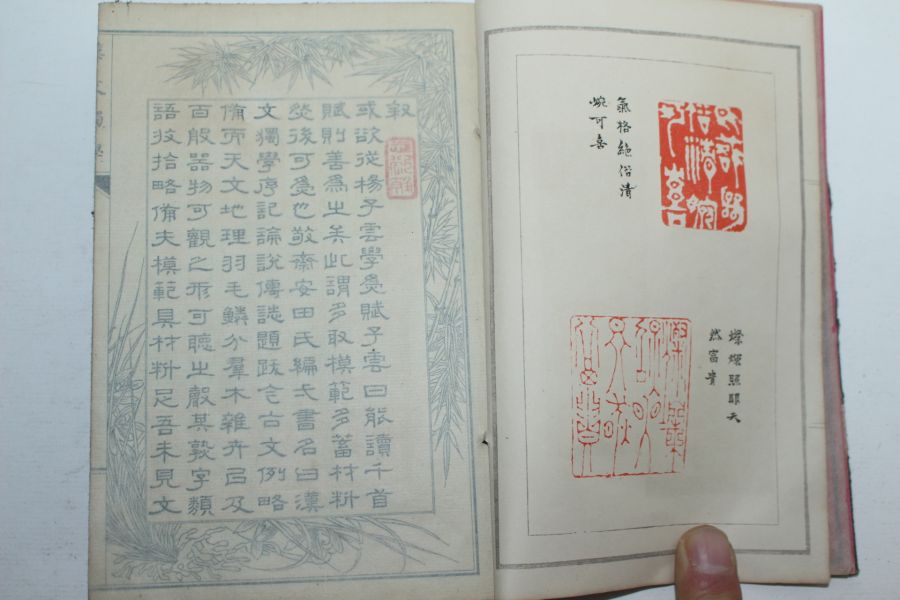 氣格絶俗清
婉可喜
燦爛照天
然富貴
叙
或欲從楊子雲學爲賦子雲曰能讀千首
賦則善爲之矣此謂多取模範多蓄材料
然後可爲也敬齋安田氏編弌書名曰漢
文獨學序記論說傳誌題跋今古文例略
備而天文地理羽毛鱗介羣木雜卉㠯及
百般器物可觀之形可聽之聲其熟字類
語收拾略備夫模範具材料足吾未見文
漢文獨學